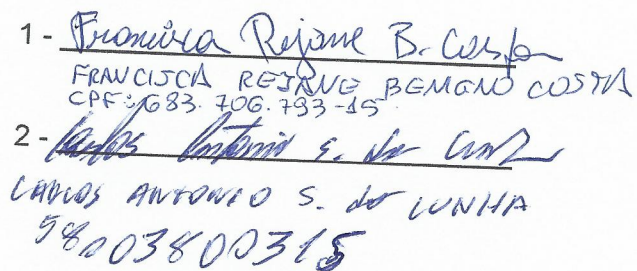 1 - Francisca Rejane B. Costa
FRANCISCA REJANE BEMGNO COSTA
CPF: 683.706.793-15
2 - Carlos Antonio S. da Cunha
CARLOS ANTONIO S. da CUNHA
58003800315